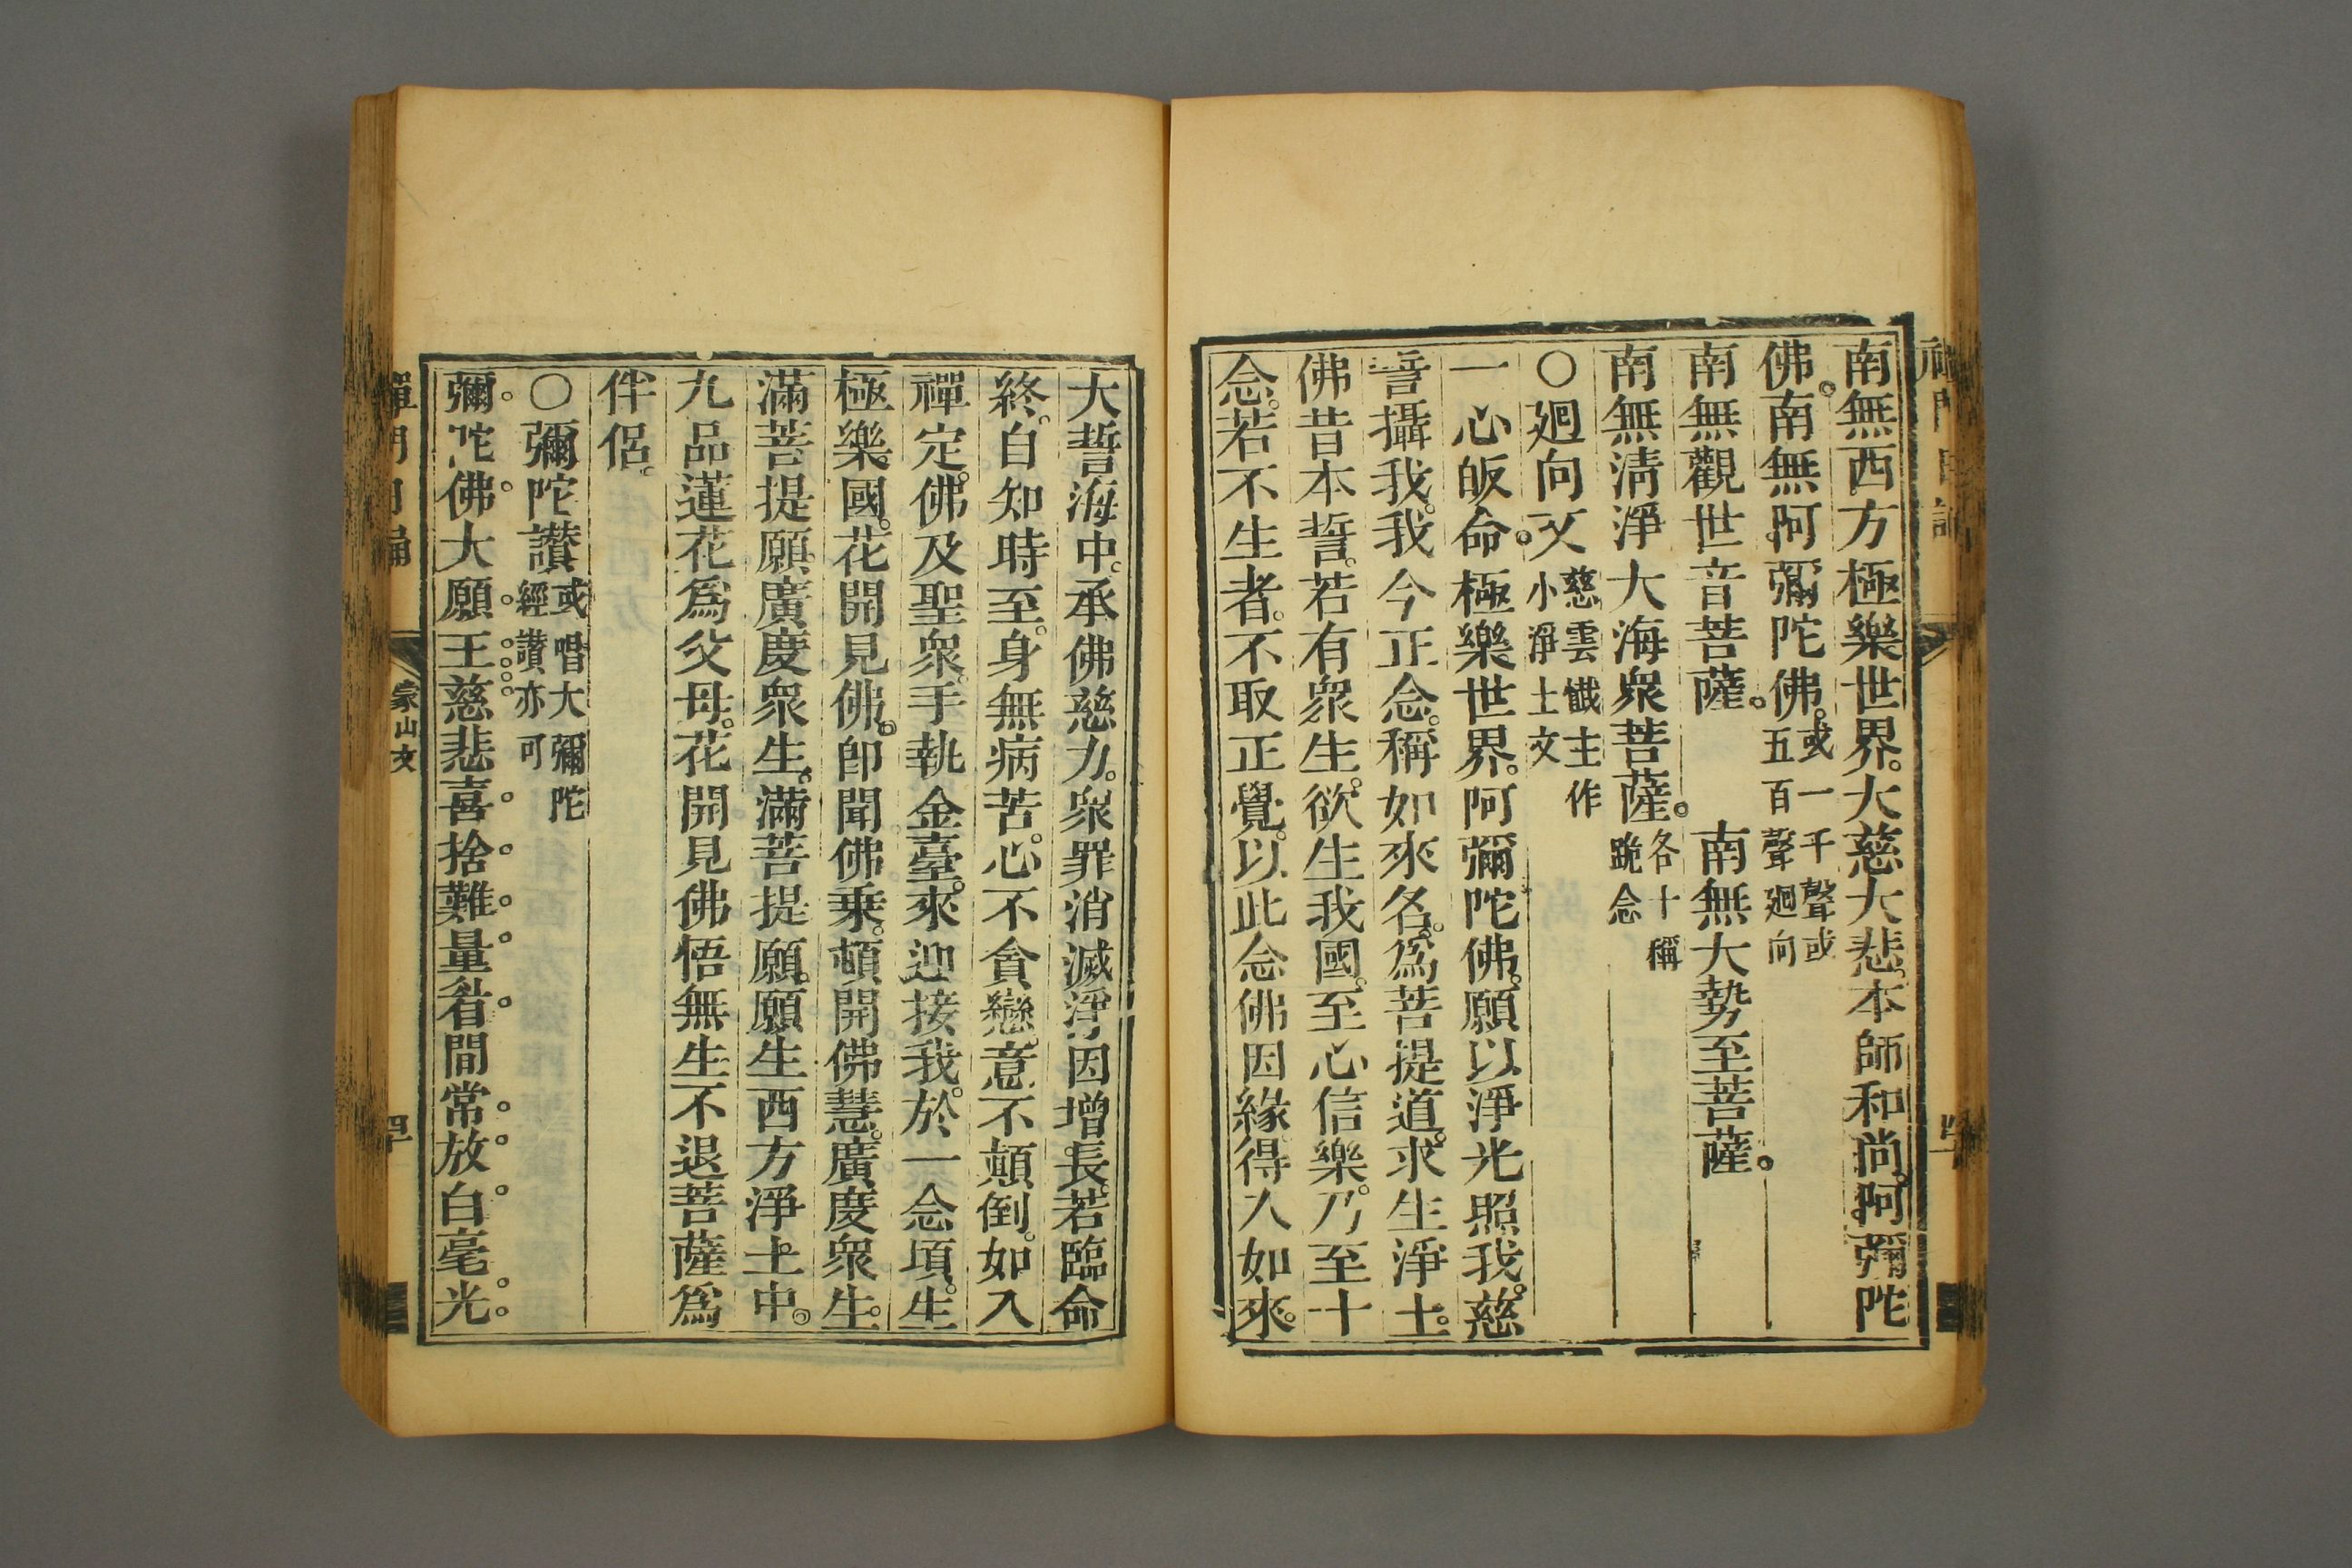 南無西方極樂世界。大慈大悲。本師和尚。阿彌陀
佛。南無阿彌陀佛。或一千聲或五百聲廻向
南無觀世音菩薩。 南無大勢至菩薩。
南無淸淨大海衆菩薩。各十稱跪念
〇廻向文 慈雲懺主作小淨土文
一心皈命。極樂世界。阿彌陀佛。願以淨光照我。慈
誓攝我。我今正念。稱如來名。爲菩提道。求生淨土。
佛昔本誓。若有衆生。欲生我國。至心信樂。乃至十
念。若不生者。不取正覺。以此念佛因緣。得入如來。
大誓海中。承佛慈力。衆罪消滅。淨因增長。若臨命
終。自知時至。身無病苦。心不貪戀。意不顚倒。如入
禪定。佛及聖衆。手執金臺。來迎接我。於一念頃。生
極樂國。花開見佛。卽聞佛乘。頓開佛慧。廣度衆生。
滿菩提願。廣度衆生。滿菩提願。願生西方淨土中。
九品蓮花爲父母。花開見佛悟無生不退菩薩爲
伴侶。
〇彌陀讚 或唱大彌陀經讚亦可
彌陀佛大願王慈悲喜捨難量眉間常放白毫光
禪門日誦
家山文